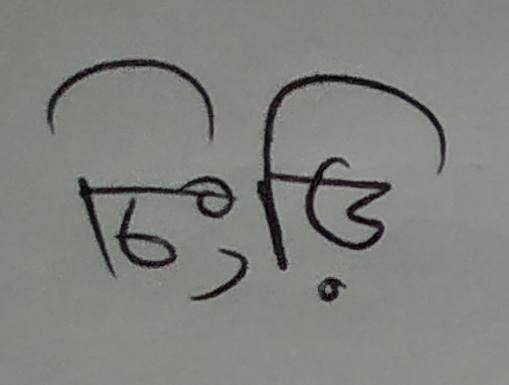 চিংড়ি